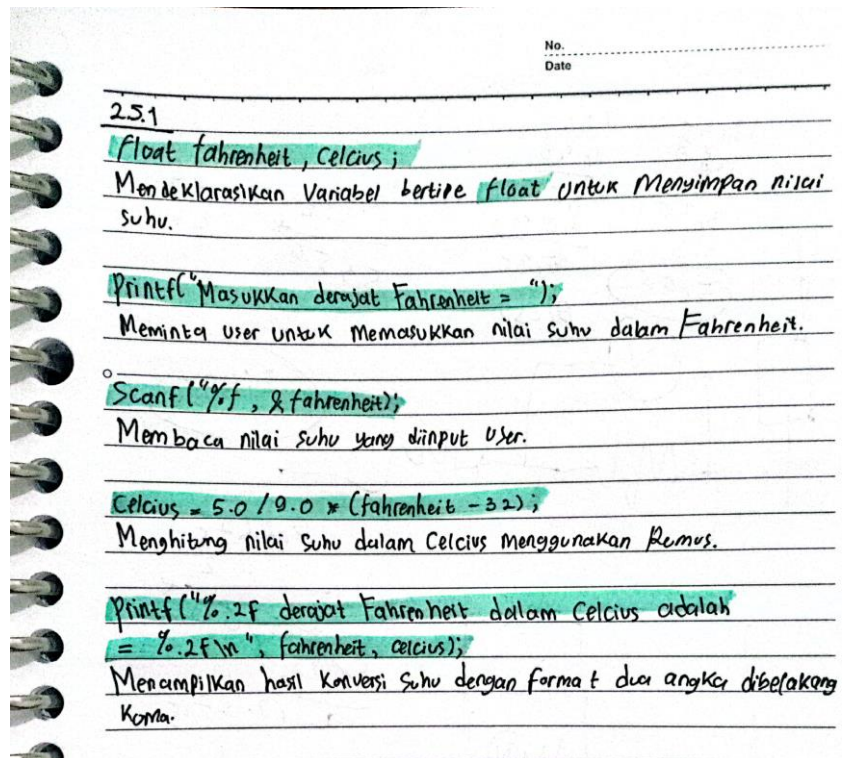 No.
Date
2.5.1
float fahrenheit, celcius;
Mendeklarasikan Variabel bertipe float untuk Menyimpan nilai
suhu.
Printf("Masukkan derajat Fahrenheit = ");
Meminta user untuk memasukkan nilai suhu dalam Fahrenheit.
Scanf("%f, &fahrenheit);
Membaca nilai suhu yang diinput User.
Celcius = 5.0 / 9.0 * (fahrenheit - 32);
Menghitung nilai suhu dalam Celcius menggunakan Rumus.
Printf("%.2f derajat Fahrenheit dalam Celcius adalah
= %.2f\n", fahrenheit, celcius);
Menampilkan hasil konversi suhu dengan format dua angka dibelakang
koma.